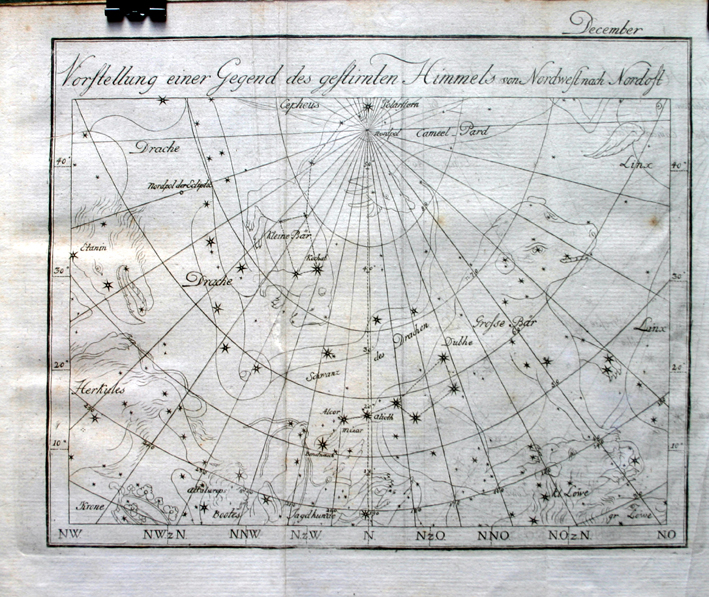 December
Vorstellung einer Gegend des gestirnten Himmels von Nordwest nach Nordost
Cepheus
Polarstern
Nordpol
Cameel Pard
Drache
Linx
40
40
Nordpol der Ecliptic
Etanin
kleine Bär
Kochab
30
30
Drache
Große Bär
Linx
des Drachen
Dubhe
Schwanz
20
20
Herkules
Alcor
mizar
alioth
10
10
Krone
Bootes
Jagdhunde
kl. Löwe
gr. Löwe
NW
NWzN
NNW
NzW
N
NzO
NNO
NOzN
NO